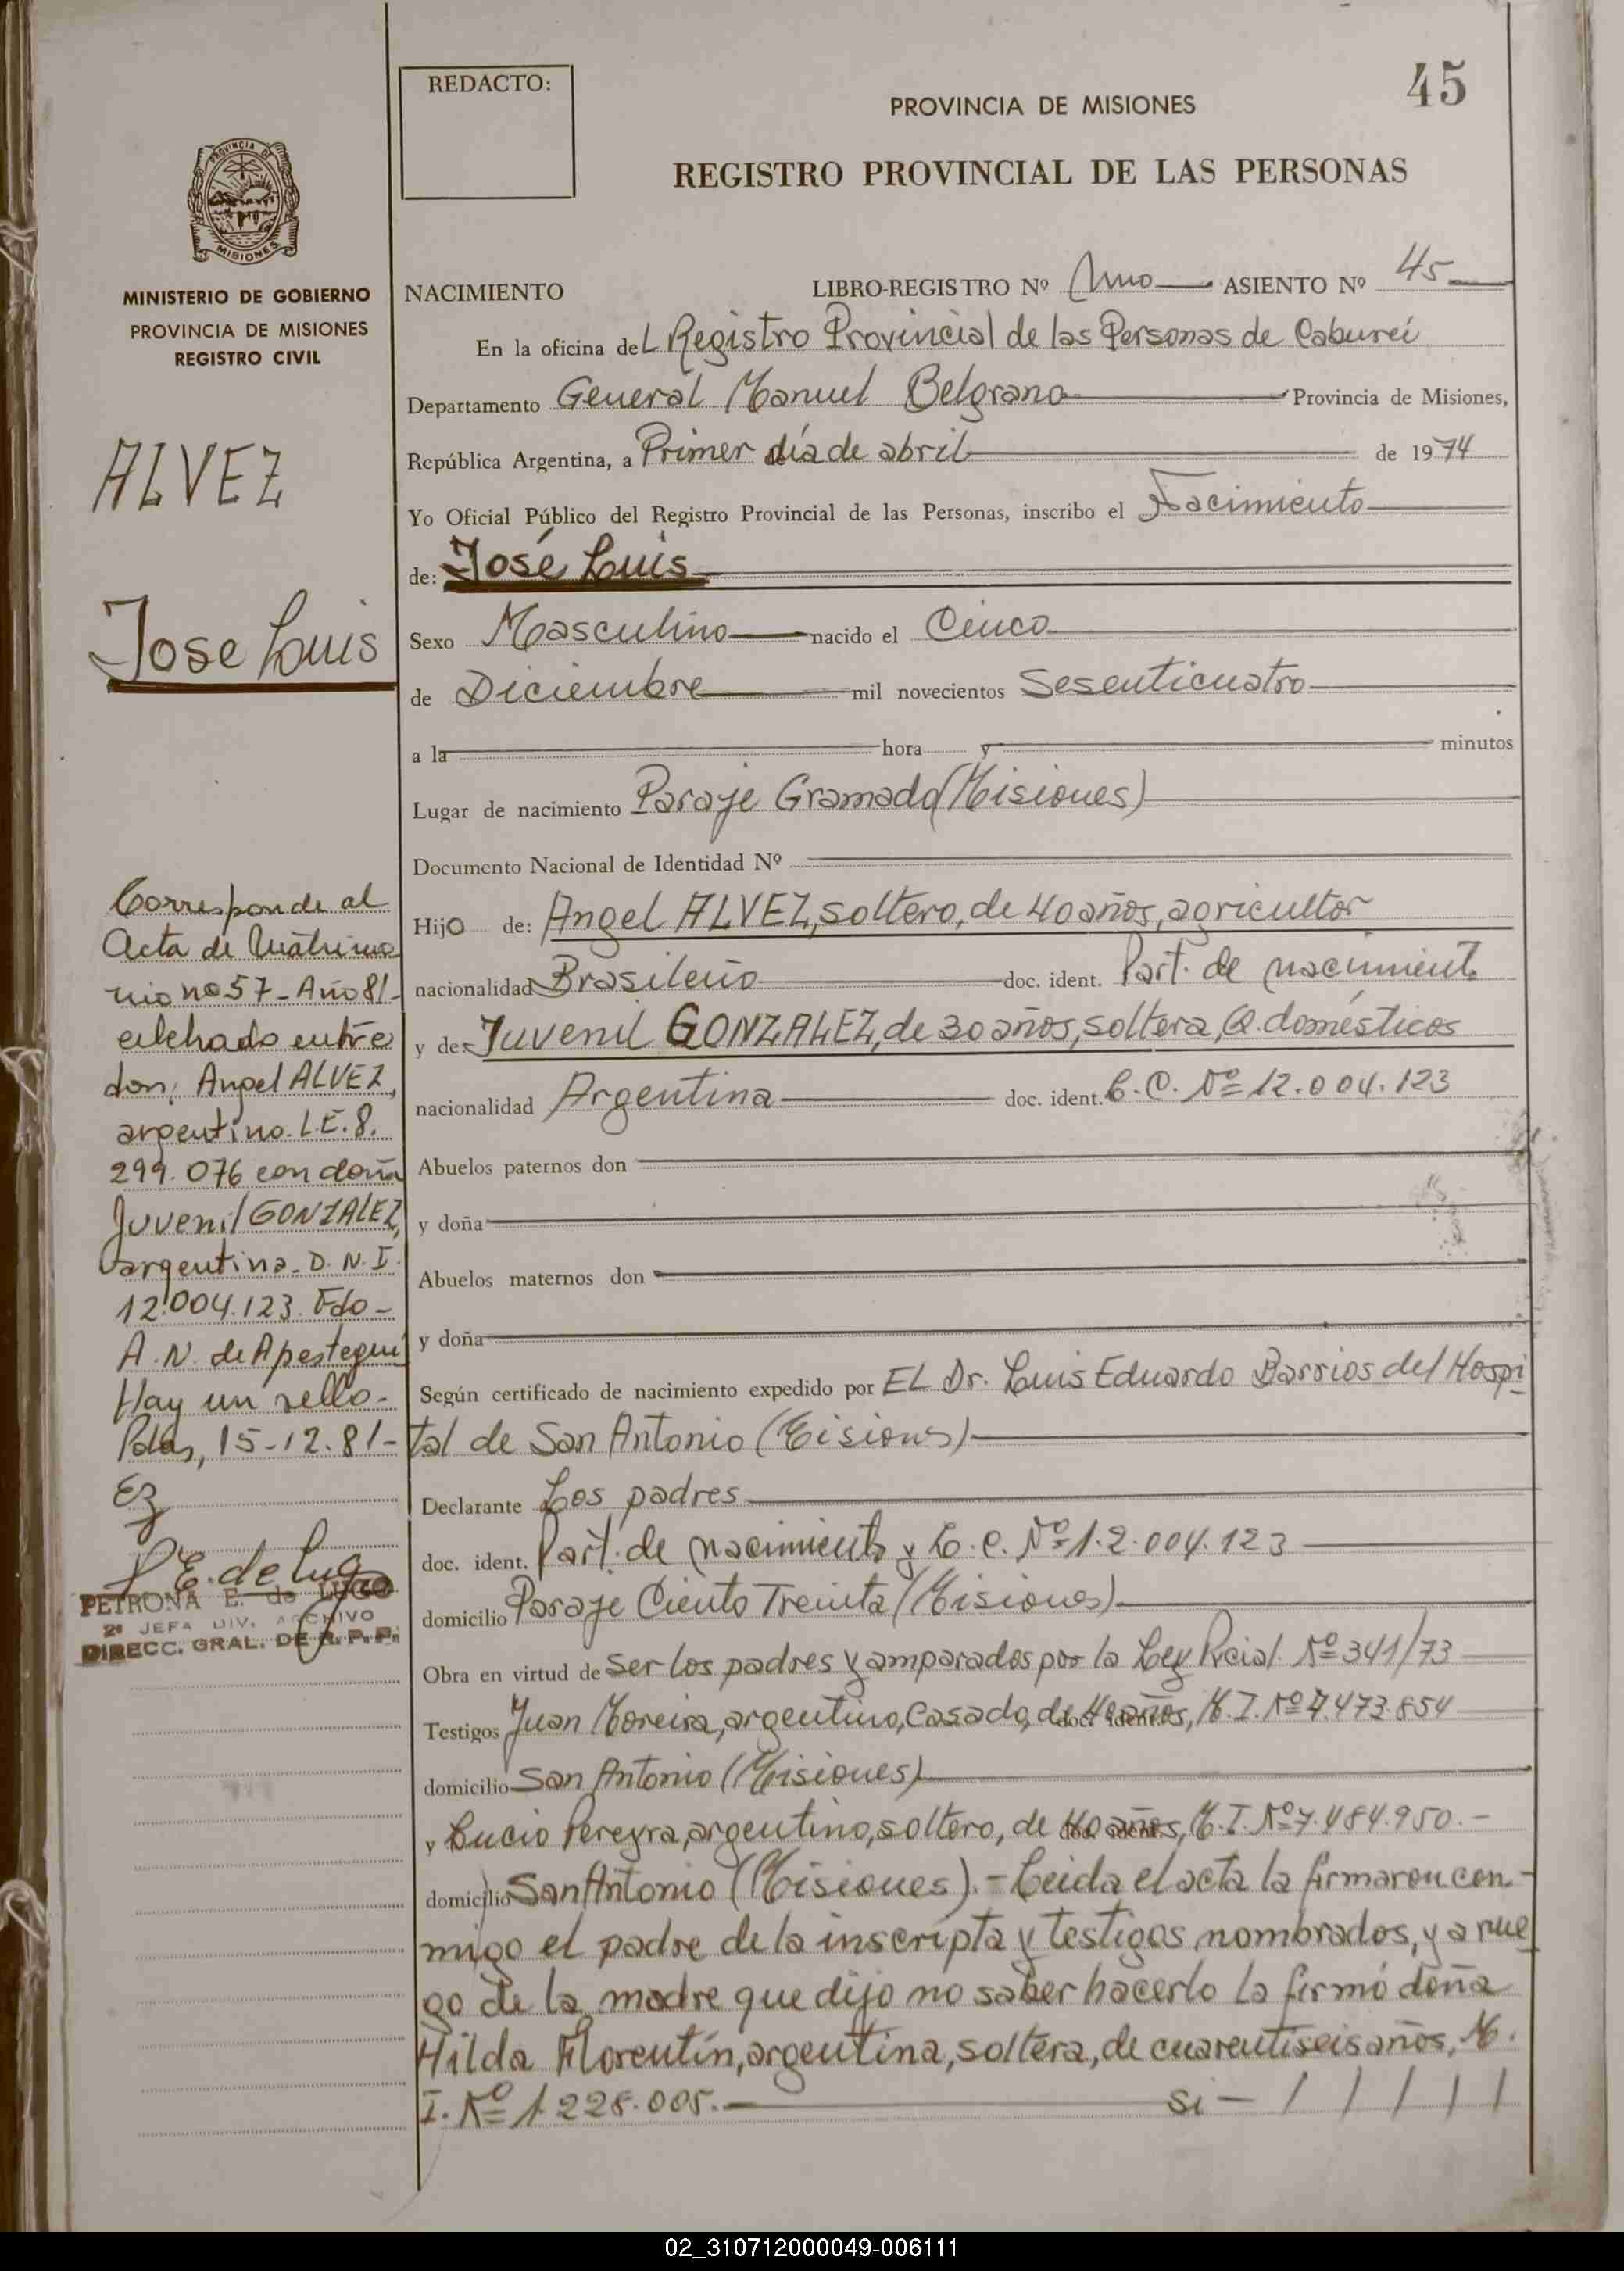 REDACTO:
45
PROVINCIA DE MISIONES
REGISTRO PROVINCIAL DE LAS PERSONAS
PROVINCIA DE
MISIONES
MINISTERIO DE GOBIERNO
PROVINCIA DE MISIONES
REGISTRO CIVIL
ALVEZ
Jose Luis
Corresponde al
Acta de Matrimo
nio no 57 - Año 81 -
celebrado entre
don: Angel ALVEZ,
argentino. L.E. 8.
299.076 con doña
Juvenil GONZALEZ,
argentina. D.N.I.
12.004.123. Fdo -
A.N. de Apestegui
Hay un sello -
Pdas, 15-12-81 -
P E. de Lugo
PETRONA E. de LUGO
2ª JEFA DIV. ARCHIVO
DIRECC. GRAL. DE R. P. P.
NACIMIENTO LIBRO-REGISTRO Nº Uno ASIENTO Nº 45
En la oficina del Registro Provincial de las Personas de Caburei
Departamento General Manuel Belgrano Provincia de Misiones,
República Argentina, a Primer día de abril de 1974
Yo Oficial Público del Registro Provincial de las Personas, inscribo el Nacimiento
de: José Luis
Sexo Masculino nacido el Cinco
de Diciembre mil novecientos Sesenticuatro
a la hora y minutos
Lugar de nacimiento Paraje Gramado (Misiones)
Documento Nacional de Identidad Nº
Hijo de: Angel ALVEZ, soltero, de 40 años, agricultor
nacionalidad Brasileño doc. ident. Part. de nacimiento
y de: Juvenil GONZALEZ, de 30 años, soltera, Q. domésticos
nacionalidad Argentina doc. ident. C.C. Nº 12.004.123
Abuelos paternos don
y doña
Abuelos maternos don
y doña
Según certificado de nacimiento expedido por EL Dr. Luis Eduardo Barrios del Hospi
tal de San Antonio (Misiones)
Declarante Los padres
doc. ident. Part. de nacimiento y C.C. Nº 12.004.123
domicilio Paraje Ciento Treinta (Misiones)
Obra en virtud de ser los padres y amparados por la Ley Pcial. Nº 341/73
Testigos Juan Moreira, argentino, casado, de 40 años, M.I. Nº 7.473.854
domicilio San Antonio (Misiones)
y Lucio Pereyra, argentino, soltero, de 40 años, M.I. Nº 7.484.950.-
domicilio San Antonio (Misiones).- Leida el acta la firmaron con-
migo el padre de la inscripta y testigos nombrados, y a rue
go de la madre que dijo no saber hacerlo la firmó doña
Hilda Florentín, argentina, soltera, de cuarentiseis años, M.
I. Nº 1.228.005.- si - / / / / /
02_310712000049-006111